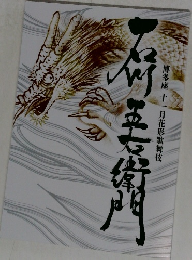 博多座 十一月花形歌舞伎
石川五右衛門